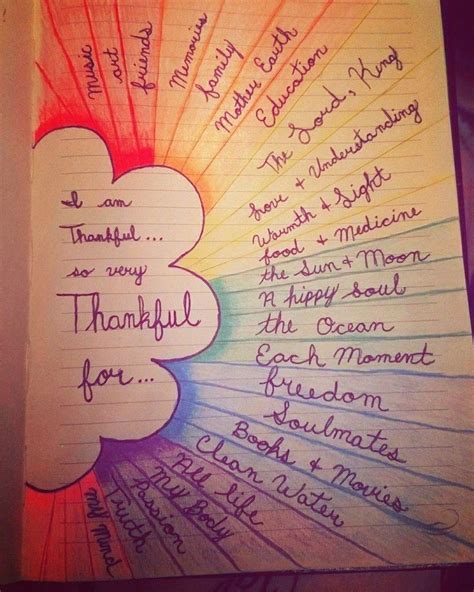 I am
Thankful...
so very
Thankful
for...
Music
art
friends
Memories
family
Mother Earth
Education
The Lord, King
Love & Understanding
Warmth & Light
food & Medicine
the Sun & Moon
A hippy soul
the Ocean
Each Moment
freedom
Soulmates
Books & Movies
Clean Water
All life
My Body
Passion
Truth
my Mind